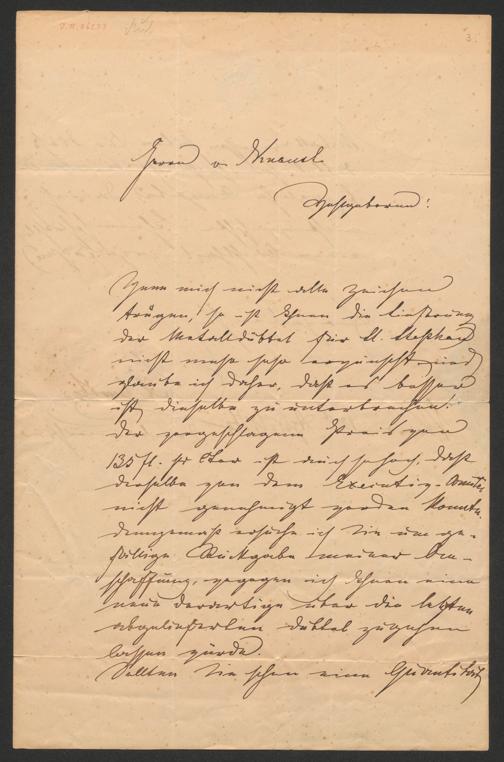 3.
Herrn v.
Wohlgeboren!
Wenn mich nicht alle Zeichen
trügen, so ist Ihnen die Lieferung
der Metalldübbel für
nicht mehr sehr erwünscht und
glaube ich daher, daß es besser
ist, dieselbe zu unterbrechen.
Der vorgeschlagene Preis von
135 fl. pr ist auch so hoch, daß
derselbe von dem Executiv-Comité
nicht genehmigt werden konnte.
demgemäß ersuche ich Sie um ge-
fällige Rückgabe meiner An-
schaffung, wogegen ich Ihnen eine
neue derartige über die letzten
abgelieferten Dübbel zugehen
lassen würde.
Sollten Sie schon eine Quantität